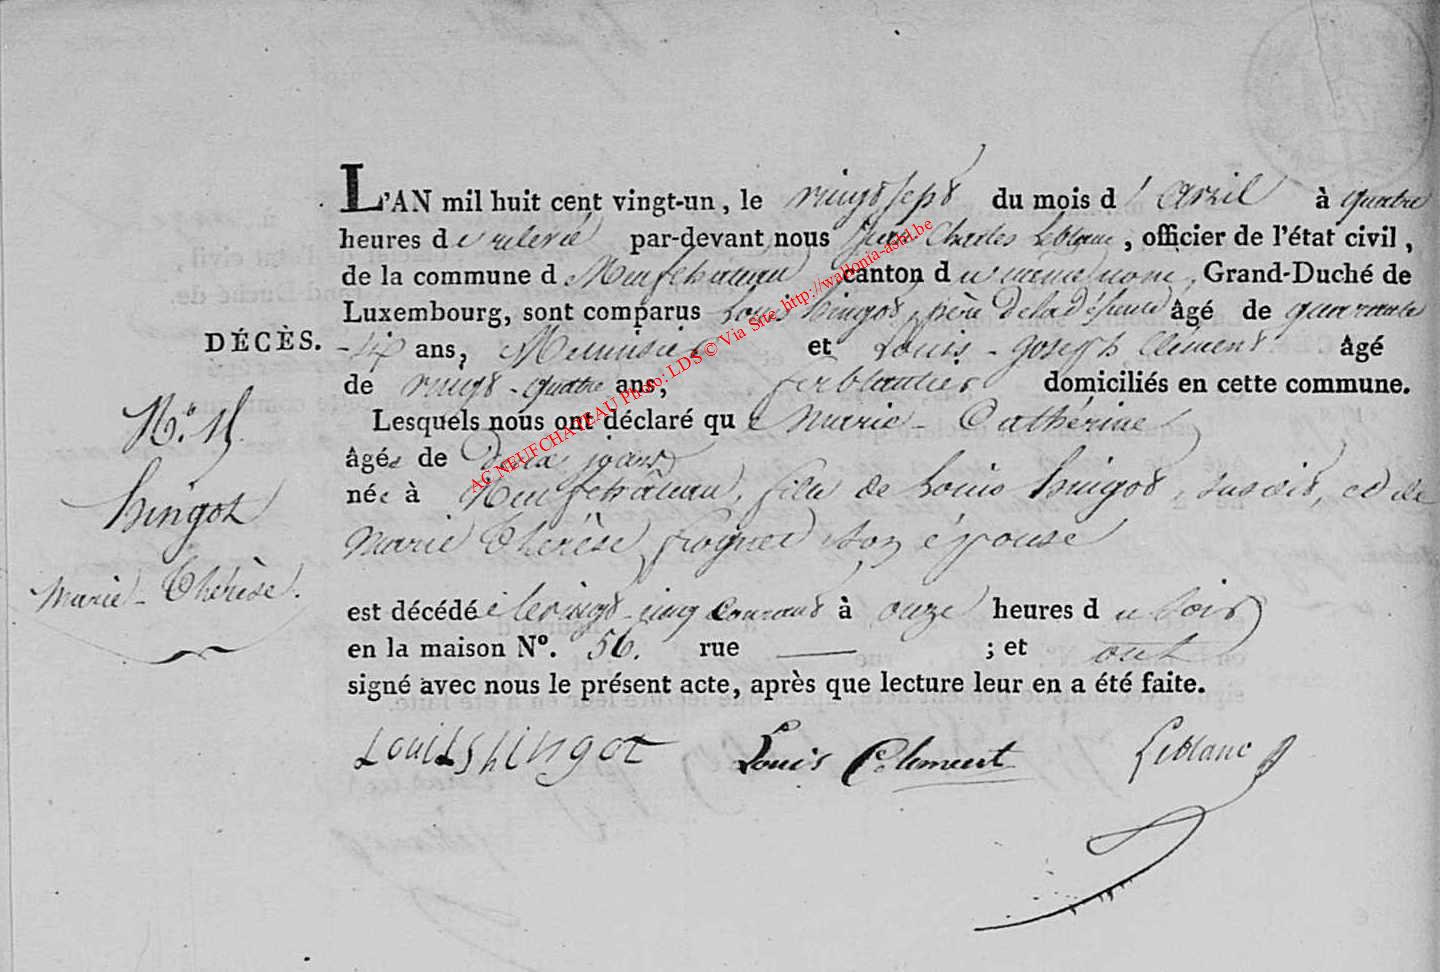 L'AN mil huit cent vingt-un, le vingt sept du mois d'avril à quatre
heures de relevé par-devant nous Jean Charles Leblanc, officier de l'état civil,
de la commune de Neufchateau canton du même nom, Grand-Duché de
Luxembourg, sont comparus Louis hingot, père de la défunte âgé de quarante
DÉCÈS.
-six ans, Menuisier et Louis-Joseph Clement âgé
de vingt-quatre ans, ferblantier domiciliés en cette commune.
Lesquels nous ont déclaré que Marie-Cathérine
âgée de deux jours
née à Neufchâteau, fille de Louis hingot, susdit, et de
Marie Thérèse frognet son épouse
No.
hingot
Marie-Thérèse.
est décédée le vingt-cinq courant à onze heures du soir
en la maison No. 56. rue ——— ; et ont
signé avec nous le présent acte, après que lecture leur en a été faite.
Louis hingot Louis Clement Leblanc
AC NEUFCHATEAU Photo: LDS © Via Site http://wallonia-asbl.be